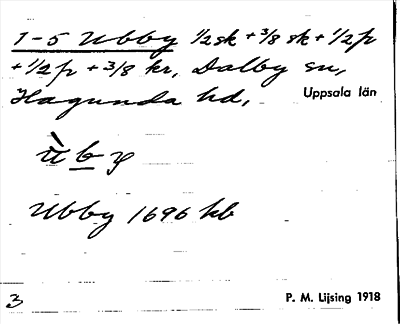 1-5 Ubby 1/2 sk + 3/8 sk + 1/2 p
+ 1/2 p + 3/8 kr, Dalby sn,
Hagunda hd, Uppsala län
ù b y
Ubby 1696 hb
3 P. M. Lijsing 1918